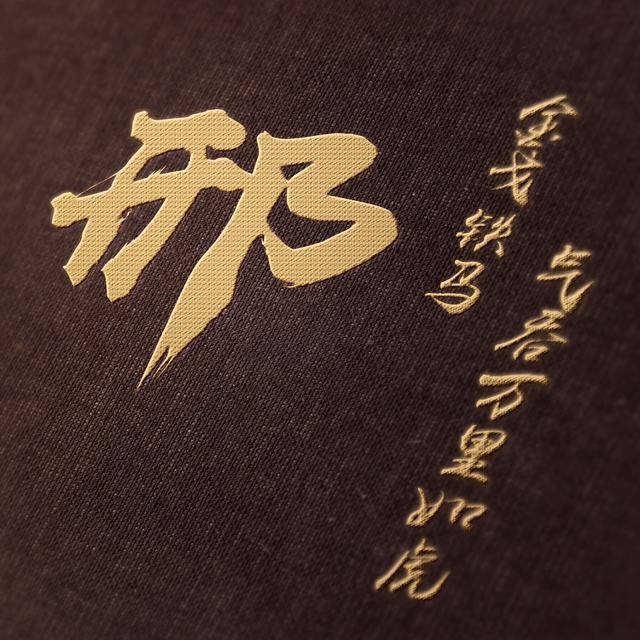 邢
金戈铁马
气吞万里如虎